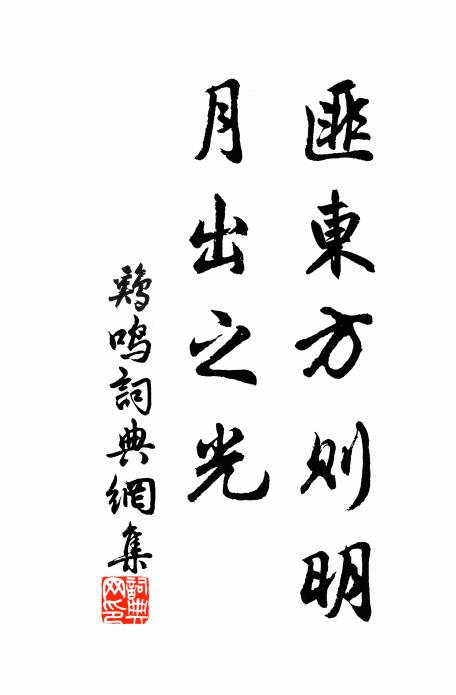 匪東方則明
月出之光
鷄鳴詞典網集
詞典
网印